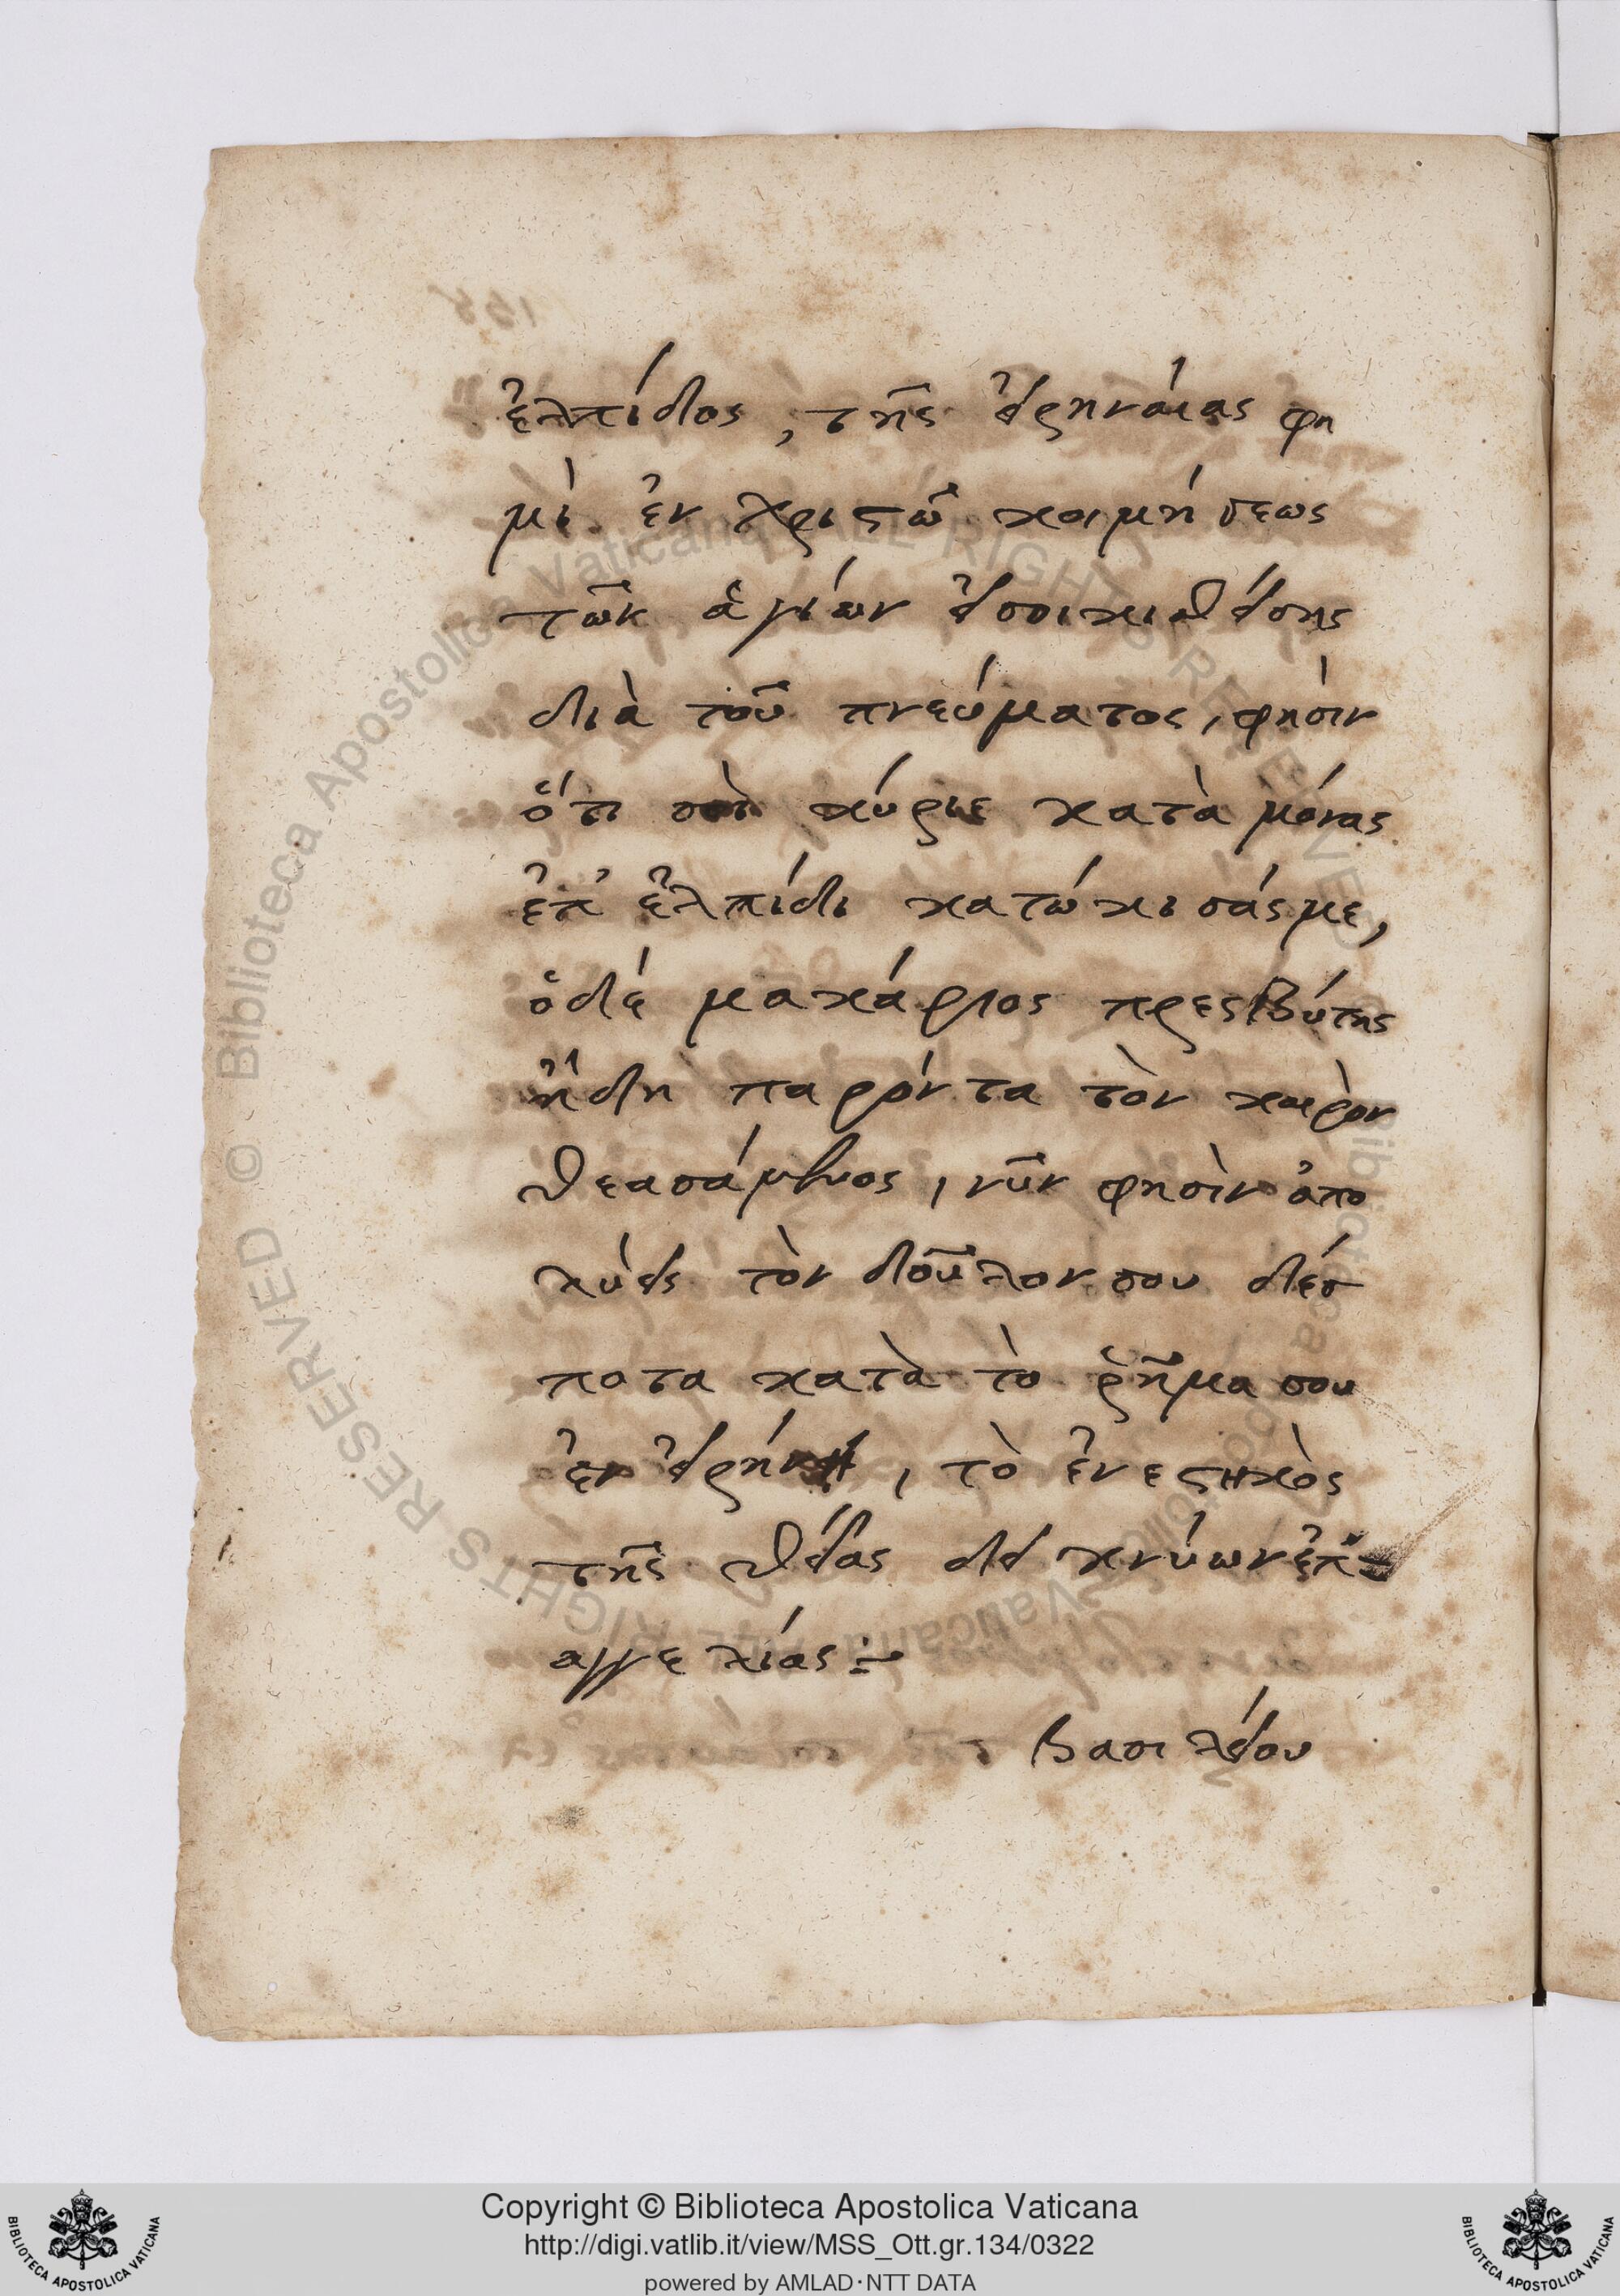 ἐλπίδος, τῆς εἰρηναίας φη
μὶ ἐν χριστῶ κοιμήσεως
τῶν ἁγίων
διὰ τοῦ πνεύματος, φησὶν
ὅτι σὺ κύριε κατὰ μόνας
ἐπ' ἐλπίδι κατώκισάς με,
ὁ δὲ μακάριος πρεσβύτης
ἤδη παρόντα τὸν καιρὸν
θεασάμενος, νῦν φησὶν ἀπο
λύεις τὸν δοῦλον σου δέσ
ποτα κατὰ τὸ ῥῆμα σου
ἐν εἰρήνη, τὸ ἐνεστηκὸς
τῆς θείας δεικνύων ἐπ
αγγελίας:~
Βασιλείου
Copyright © Biblioteca Apostolica Vaticana
http://digi.vatlib.it/view/MSS_Ott.gr.134/0322
powered by AMLAD·NTT DATA
BIBLIOTECA APOSTOLICA VATICANA
BIBLIOTECA APOSTOLICA VATICANA